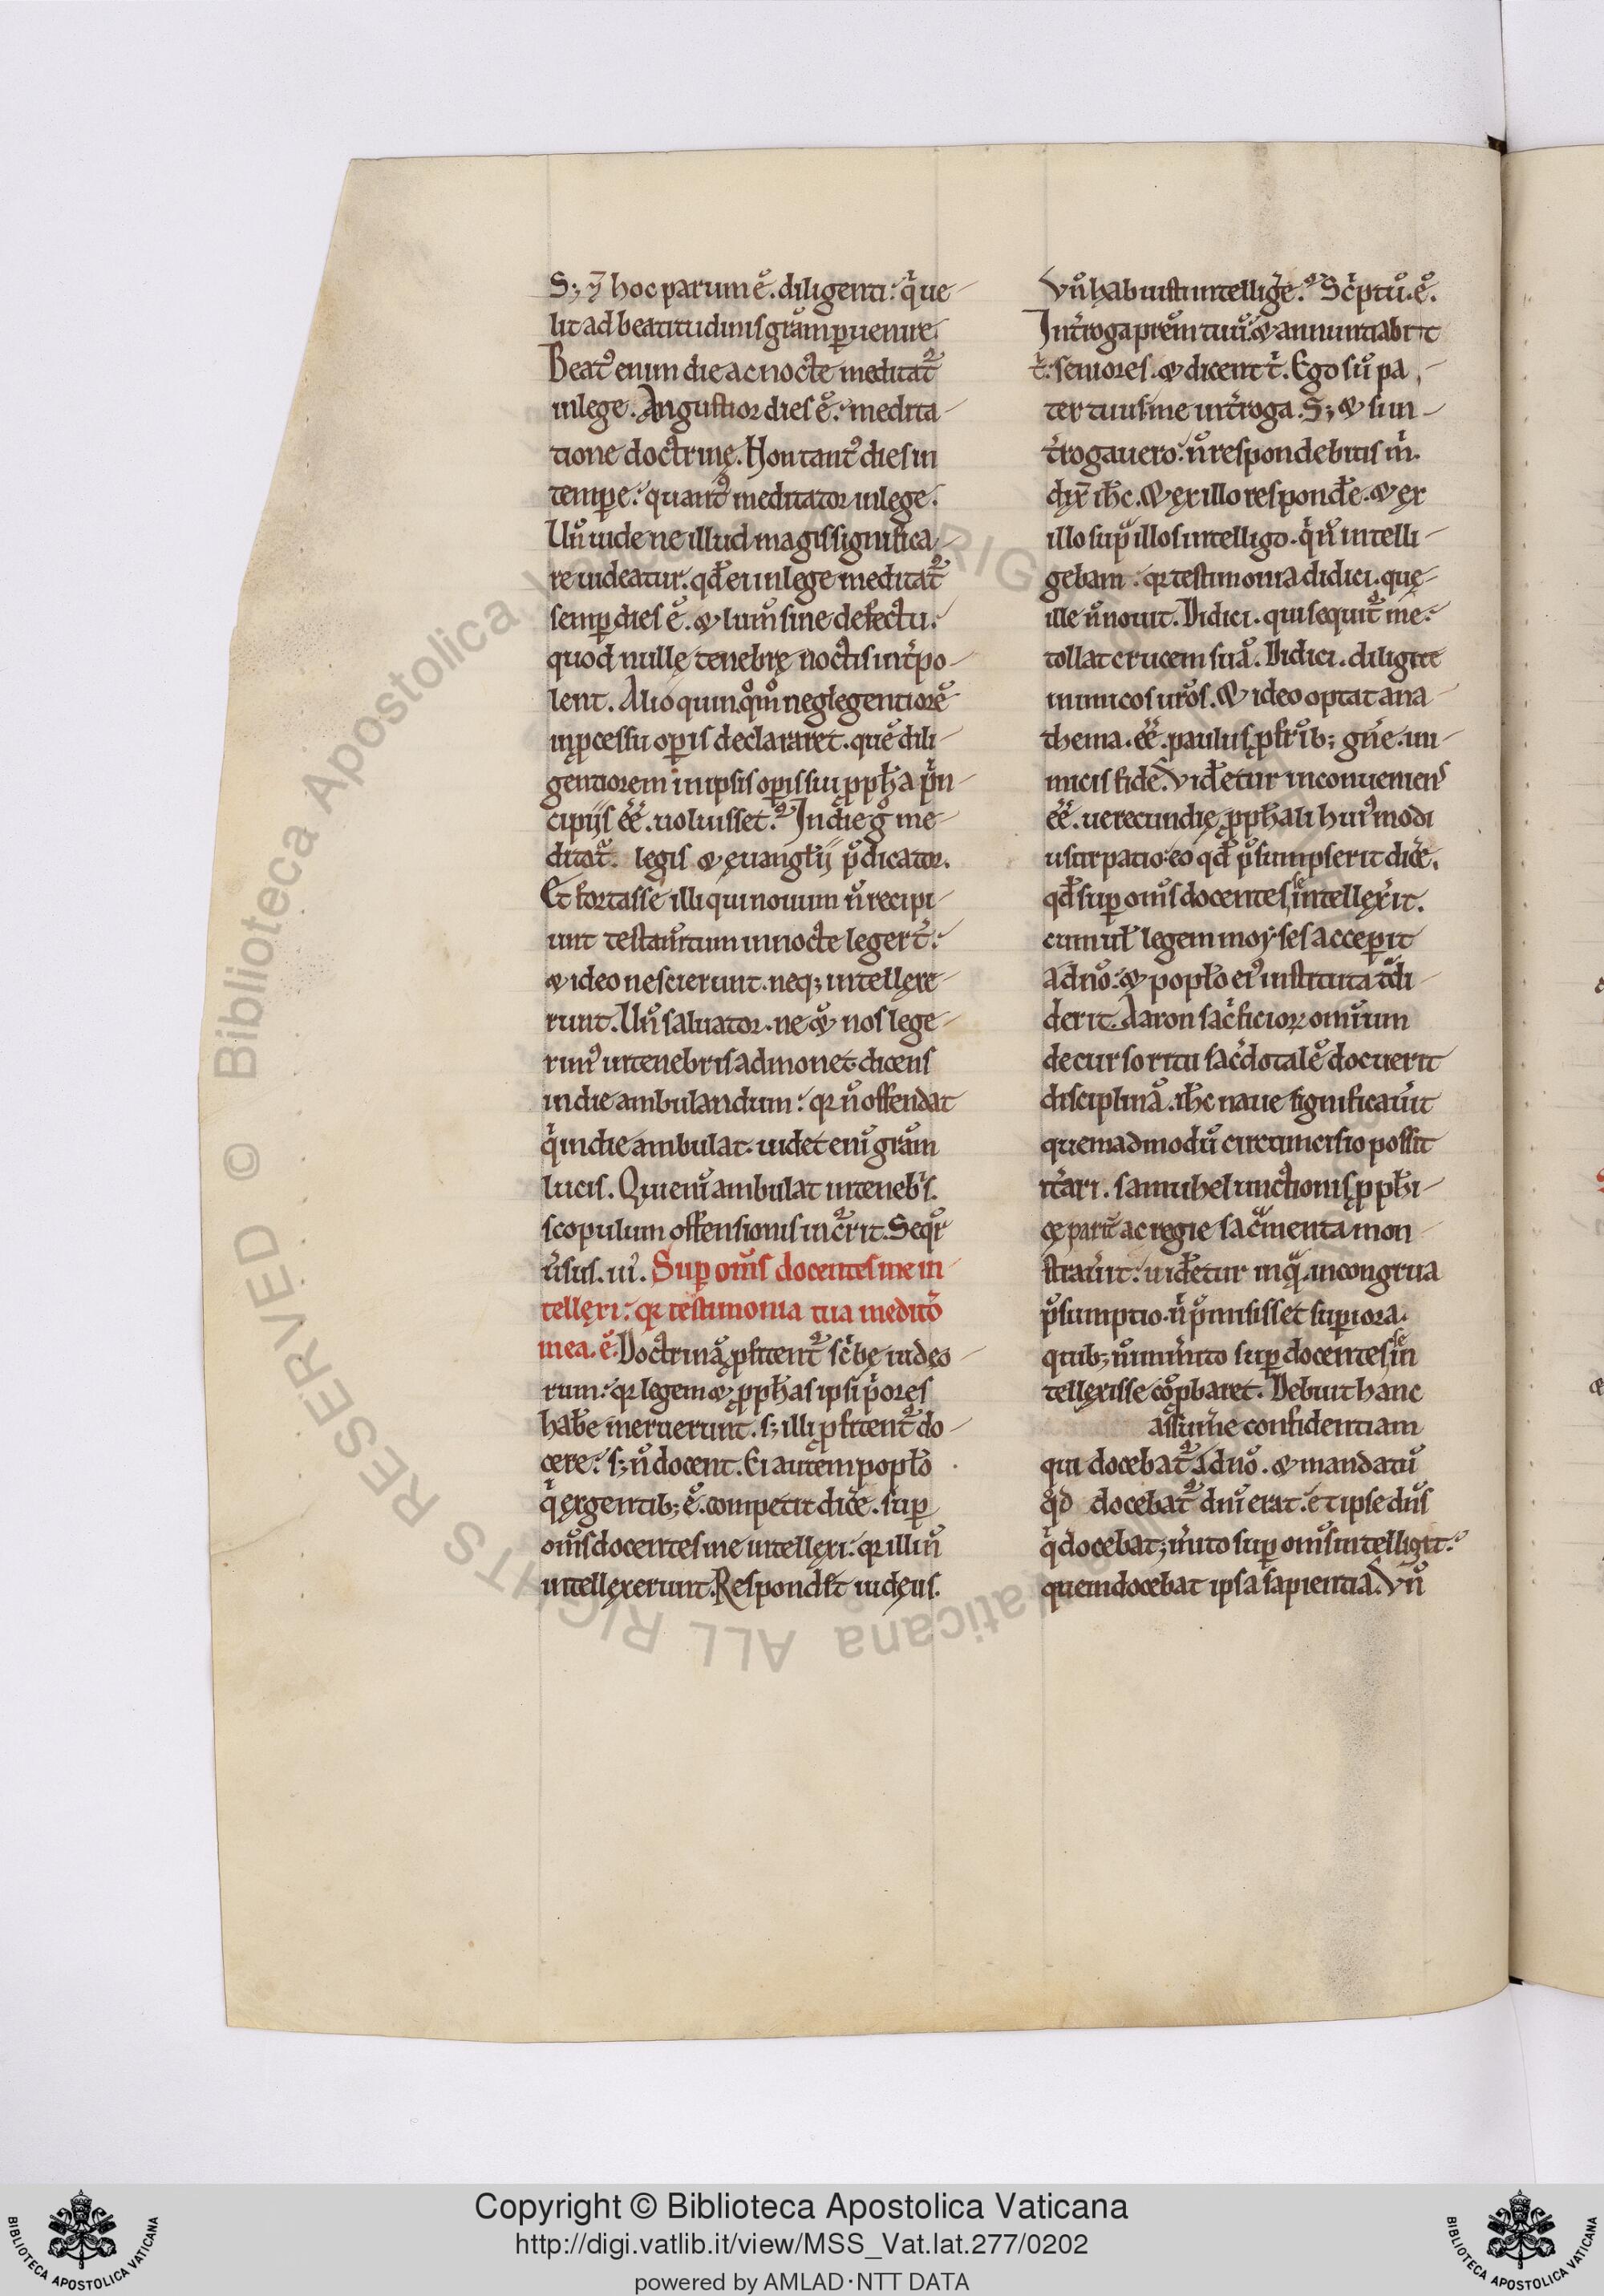 S; & hoc parum ē. diligenti. qi ue
lit ad beatitudinis grām puenire.
Beat' enim die ac nocte meditat᷑
in lege. Angustior dies ē. medita
tione doctrinę. Non tant' dies in
tempe. quant' meditator in lege.
Uñ uide ne illud magis significa
re uideatur. qđ ei in lege meditat᷑
semp dies ē. & lum̄ sine defectu.
quod nullę tenebrę noctis int̄po
lent. Alioquin qm̄ neglegentiorē
in pcessu opis declararet. quē dili
gentiorem in ipsis opis sui ppha pin
cipiis ēē. uoluisset. In die g° me
ditat᷑ legis & euanglii p̄dicator.
Et fortasse illi qui nouum ñ recipi
unt testam̄tum in nocte legert̄.
& ideo nescierunt. neq; intellexe
runt. Uñ saluator. ne & nos lege
rim' in tenebris admonet dicens
in die ambulandum. qr ñ offendat
qi in die ambulat. uidet eni grām
lucis. Qui eni ambulat in tenebis.
scopulum offensionis incirrit. Seqr̄
ūsus. iii. Sup om̄s docentes me in
tellexi. qr testimonia tua medito
mea. ē. Doctrinā pfitent᷑ scibę iudeo
rum. qr legem & pphas ipsi piores
habe meruerunt. s; illi pfitent᷑ do
cere. s; ñ docent. Ei autem poplo
qi ex gentib; ē. competit dice. sup
om̄s docentes me intellexi. qr illi ñ
intellexerunt. Respondit iudeus.
Uñ habuisti intellige. Sciptū. ē.
Int̄roga prem tuū. & annuntiabit
t. seniores. & dicent t. Ego sū pa
ter tuus. me int̄roga. S; & si in
t̄rogauero. ñ respondebitis m.
dix ihc. & ex illo responde. & ex
illo sup illos intelligo. qi ñ intelli
gebam. qr testimonia didici. quę
ille ñ nouit. Didici. qui sequit᷑ me.
tollat crucem suā. Didici. diligite
inimicos uros. & ideo optat ana
thema. ēē. paulus p fr̄ib; gne. ini
micis fide. Videtur inconueniens
ēē. uerecundię pphali hui'modi
usurpatio. eo qđ p̄sumpserit dice.
qđ sup om̄s docentes se intellexit.
cum ul legem moyses acceperit
a dno. & poplo ei' instituta tdi
derit. Aaron sacificiorꝝ omnium
decurso ritu sacdotalē docuerit
disciplinā. ihc naue significauit
quemadmodū circumcisio possit
it̄ari. samuhel unctionis pphi
cę parit ac regie sacmenta mon
strauit. uidetur inq. incongrua
p̄sumptio. n p̄misisset superiora.
quib; ñ inmito sup docentes se in
tellexisse cōpbaret. Debuit hanc
assume confidentiam
qui docebat᷑ a dno. & mandatū
qđ docebat᷑ dni erat. et ipse dns
qi docebat; mito sup om̄s intelligit.
quem docebat ipsa sapientia. Uñ
Copyright © Biblioteca Apostolica Vaticana
http://digi.vatlib.it/view/MSS_Vat.lat.277/0202
powered by AMLAD·NTT DATA